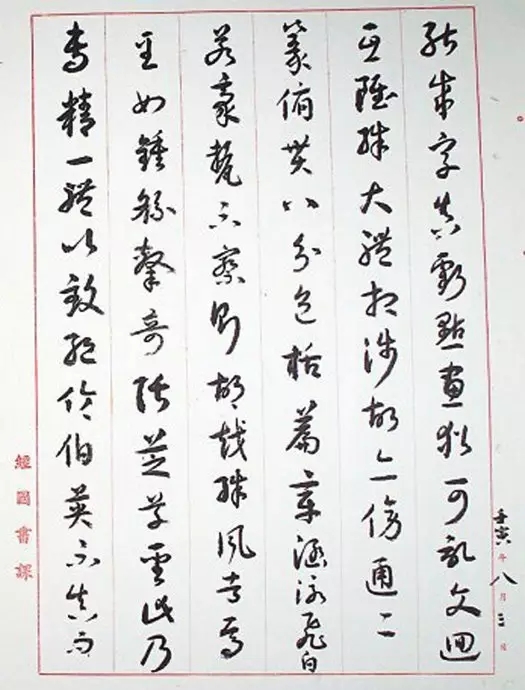 能成字真虧點畫猶可記文迴
互雖殊大體相涉故亦傍通二
篆俯貫八分包括篇章涵泳飛白
若豪氂不察則胡越殊風者焉
至如鍾繇隸奇張芝草聖此乃
專精一體以致絕倫伯英不真而
壬寅年八月三日
經國書課